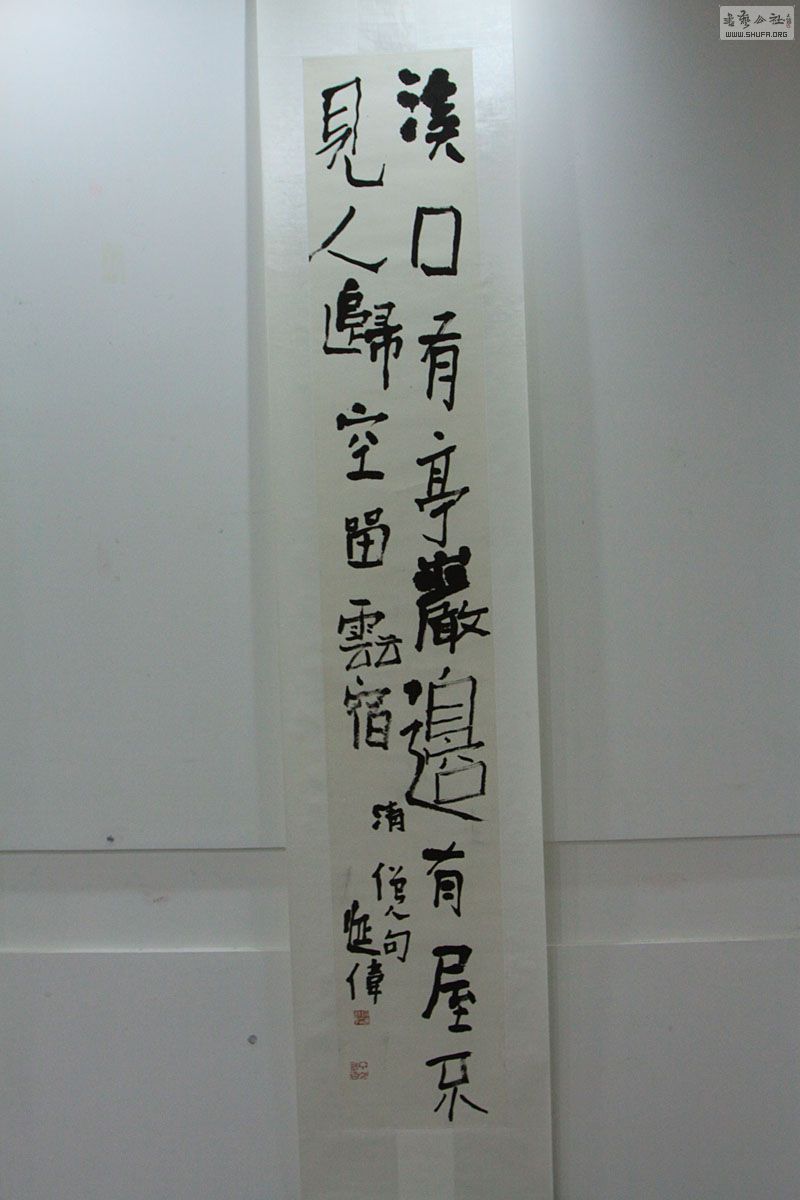 溪口有亭巖邊有屋不
見人歸空留雲宿
清 僧人句
書藝公社
WWW.SHUFA.ORG